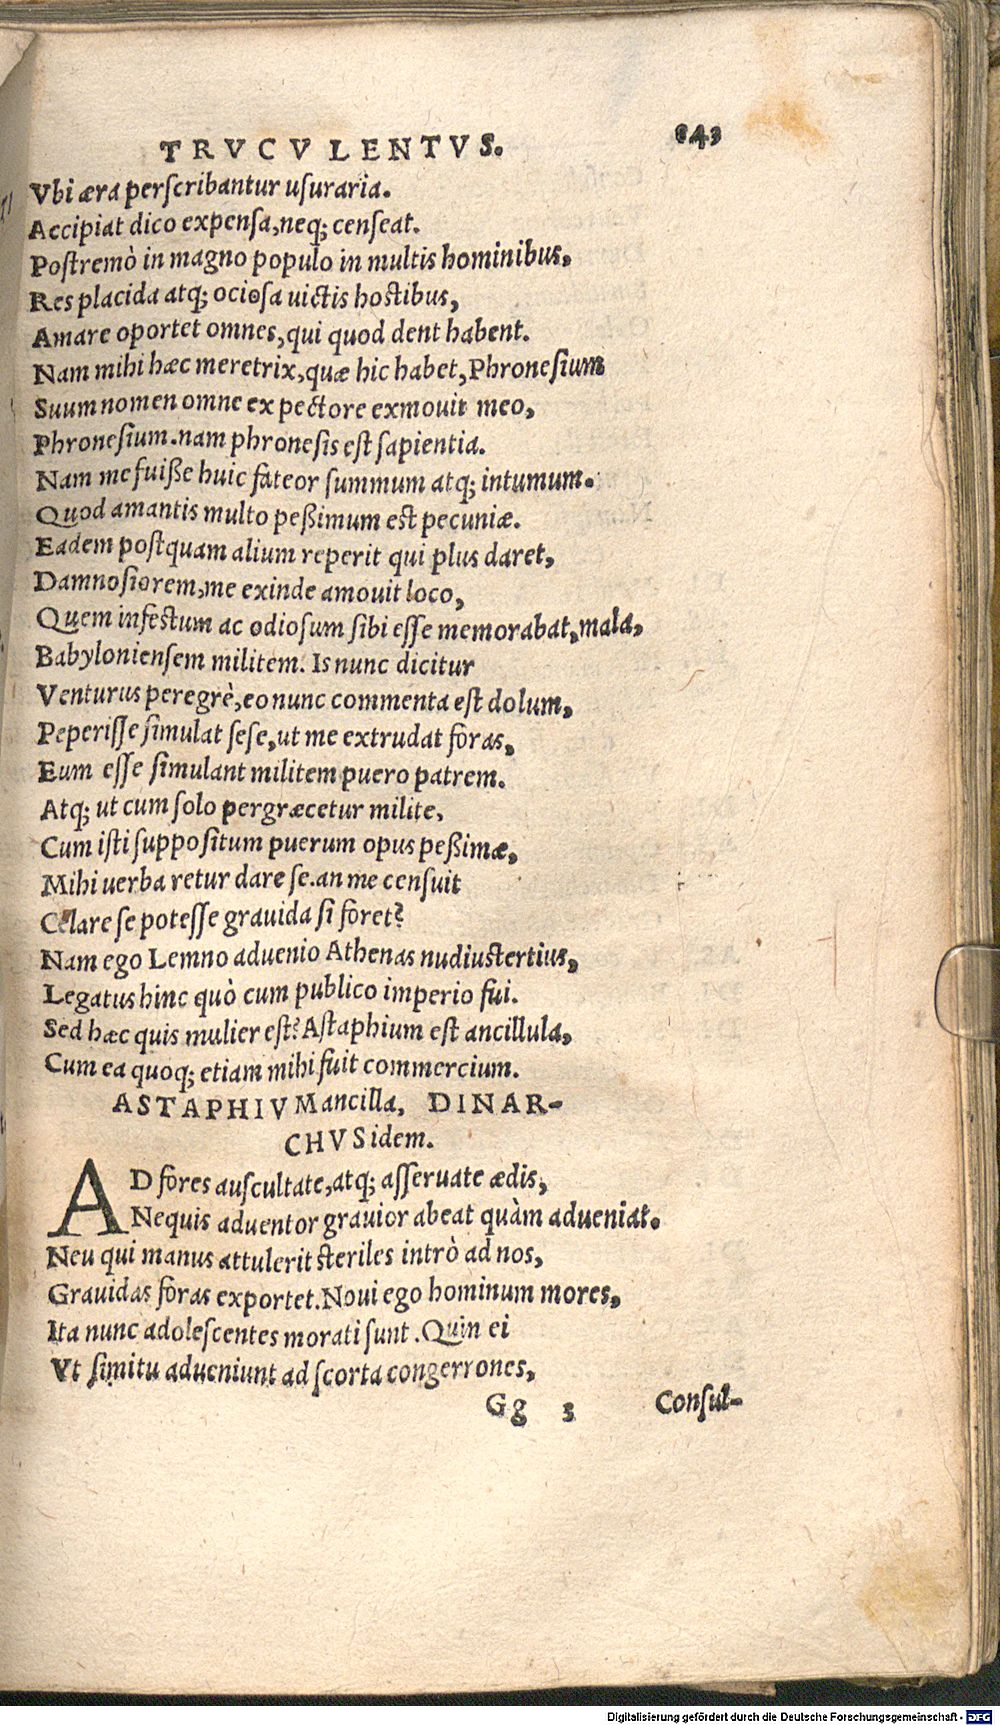 TRVCVLENTVS. 843
Vbi æra perscribantur usuraria.
Accipiat dico expensa, neq; censeat.
Postremò in magno populo in multis hominibus,
Res placida atq; ociosa uictis hostibus,
Amare oportet omnes, qui quod dent habent.
Nam mihi hæc meretrix, quæ hic habet, Phronesium
Suum nomen omne ex pectore exmouit meo,
Phronesium. nam phronesis est sapientia.
Nam me fuiße huic fateor summum atq; intumum.
Quod amantis multo peßimum est pecuniæ.
Eadem postquam alium reperit qui plus daret,
Damnosiorem, me exinde amouit loco,
Quem infestum ac odiosum sibi esse memorabat, mala,
Babyloniensem militem. Is nunc dicitur
Venturus peregrè, eo nunc commenta est dolum,
Peperisse simulat sese, ut me extrudat foras,
Eum esse simulant militem puero patrem.
Atq; ut cum solo pergræcetur milite,
Cum isti suppositum puerum opus peßimæ,
Mihi uerba retur dare se. an me censuit
Celare se potesse grauida si foret?
Nam ego Lemno aduenio Athenas nudiustertius,
Legatus hinc quò cum publico imperio fui.
Sed hæc quis mulier est? Astaphium est ancillula,
Cum ea quoq; etiam mihi fuit commercium.
ASTAPHIVM ancilla, DINAR-
CHVS idem.
AD fores auscultate, atq; asseruate ædis,
Nequis aduentor grauior abeat quàm adueniat.
Neu qui manus attulerit steriles intrò ad nos,
Grauidas foras exportet. Noui ego hominum mores,
Ita nunc adolescentes morati sunt. Quin ei
Vt simitu adueniunt ad scorta congerrones,
Gg 3 Consul-
Digitalisierung gefördert durch die Deutsche Forschungsgemeinschaft - DFG